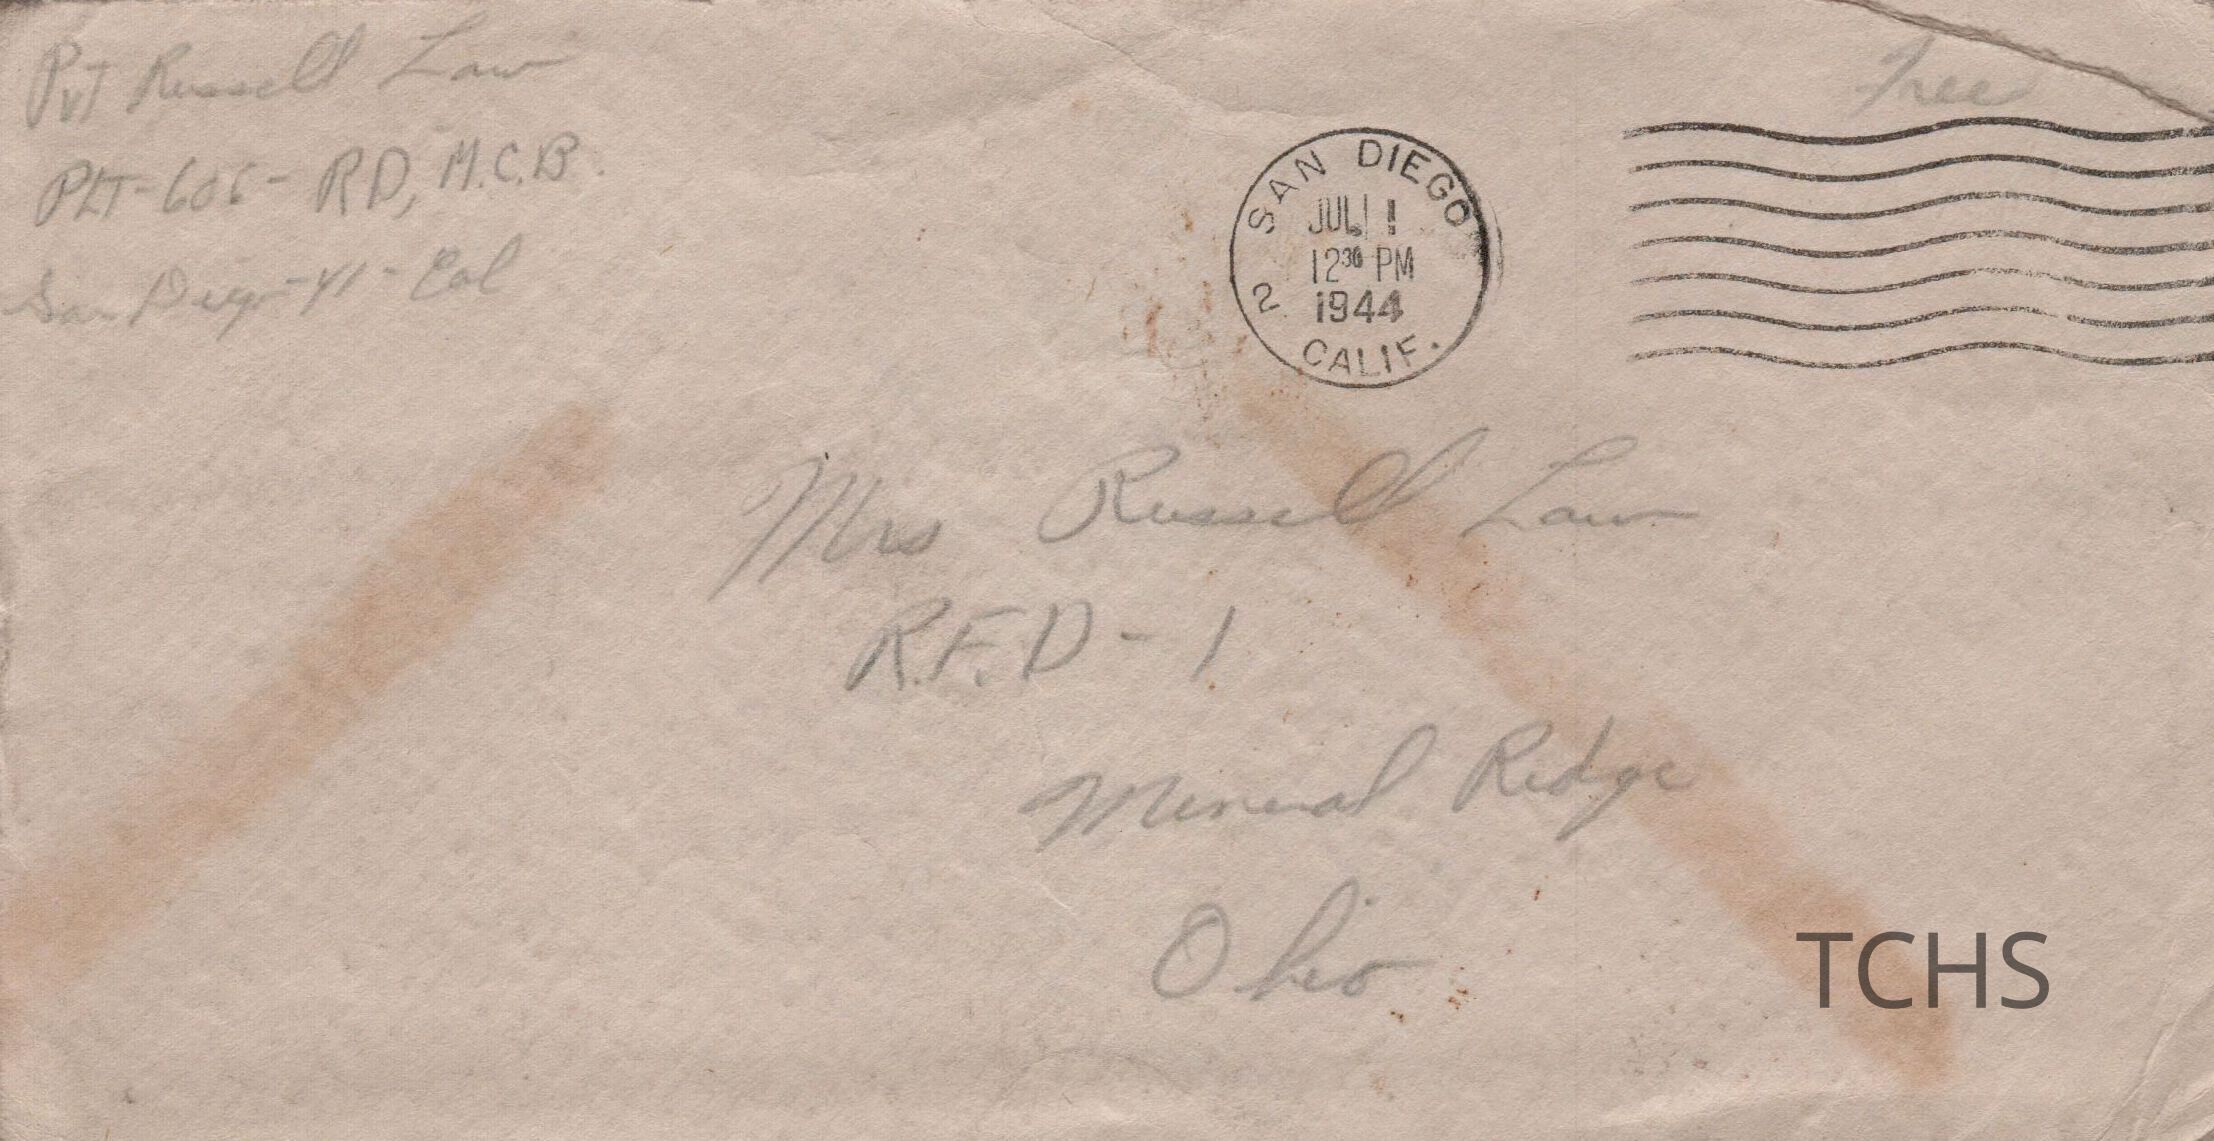 Pvt Russell Law
PLT-606- RD, M.C.B.
San Diego-41-Cal
Free
SAN DIEGO
JUL 1
12 30 PM
1944
2
CALIF.
Mrs Russell Law
R.F.D - 1
Mineral Ridge
Ohio
TCHS